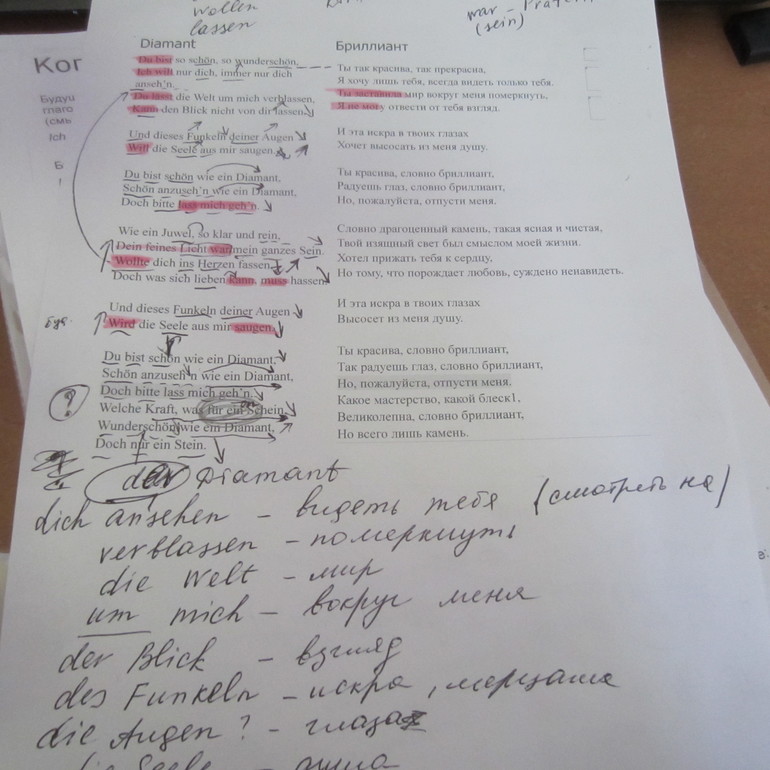 wollen
lassen
war – Präter
(sein)
Ког
Будущ
глаго
(смь
Ich
Б
Diamant
Du bist so schön, so wunderschön,
Ich will nur dich, immer nur dich
anseh'n.
Du lässt die Welt um mich verblassen,
Kann den Blick nicht von dir lassen.
Und dieses Funkeln deiner Augen
Will die Seele aus mir saugen.
Du bist schön wie ein Diamant,
Schön anzuseh'n wie ein Diamant,
Doch bitte lass mich geh'n.
Wie ein Juwel, so klar und rein,
Dein feines Licht war mein ganzes Sein.
Wollte dich ins Herzen fassen,
Doch was sich lieben kann, muss hassen.
Und dieses Funkeln deiner Augen
Wird die Seele aus mir saugen.
Du bist schön wie ein Diamant,
Schön anzuseh'n wie ein Diamant,
Doch bitte lass mich geh'n.
Welche Kraft, was für ein Schein,
Wunderschön wie ein Diamant,
Doch nur ein Stein.
Бриллиант
Ты так красива, так прекрасна,
Я хочу лишь тебя, всегда видеть только тебя.
Ты заставила мир вокруг меня померкнуть,
Я не могу отвести от тебя взгляд.
И эта искра в твоих глазах
Хочет высосать из меня душу.
Ты красива, словно бриллиант,
Радуешь глаз, словно бриллиант,
Но, пожалуйста, отпусти меня.
Словно драгоценный камень, такая ясная и чистая,
Твой изящный свет был смыслом моей жизни.
Хотел прижать тебя к сердцу,
Но тому, что порождает любовь, суждено ненавидеть.
И эта искра в твоих глазах
Высосет из меня душу.
Ты красива, словно бриллиант,
Так радуешь глаз, словно бриллиант,
Но, пожалуйста, отпусти меня.
Какое мастерство, какой блеск1,
Великолепна, словно бриллиант,
Но всего лишь камень.
?
der Diamant
dich ansehen – видеть тебя (смотреть на)
verblassen – померкнуть
die Welt – мир
um mich – вокруг меня
der Blick – взгляд
des Funkeln – искра, мерцание
die Augen ? – глаза
die Seele – душа